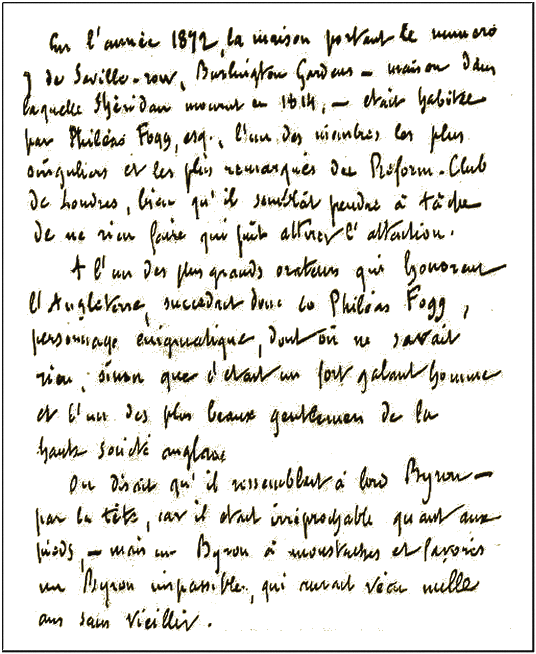 En l'année 1872, la maison portant le numero
7 de Saville-row, Burlington Gardens – maison dans
laquelle Shéridan mourut en 1814, – était habitée
par Philéas Fogg, esq., l'un des membres les plus
singuliers et les plus remarqués du Reform-Club
de Londres, bien qu'il semblât prendre à tâche
de ne rien faire qui pût attirer l'attention.
A l'un des plus grands orateurs qui honorent
l'Angleterre, succédait donc ce Philéas Fogg,
personnage énigmatique, dont on ne savait
rien, sinon que c'était un fort galant homme
et l'un des plus beaux gentlemen de la
haute société anglaise
On disait qu'il ressemblait à lord Byron –
par la tête, car il était irréprochable quant aux
pieds, – mais un Byron à moustaches et favoris
un Byron impassible, qui aurait vécu mille
ans sans vieillir.